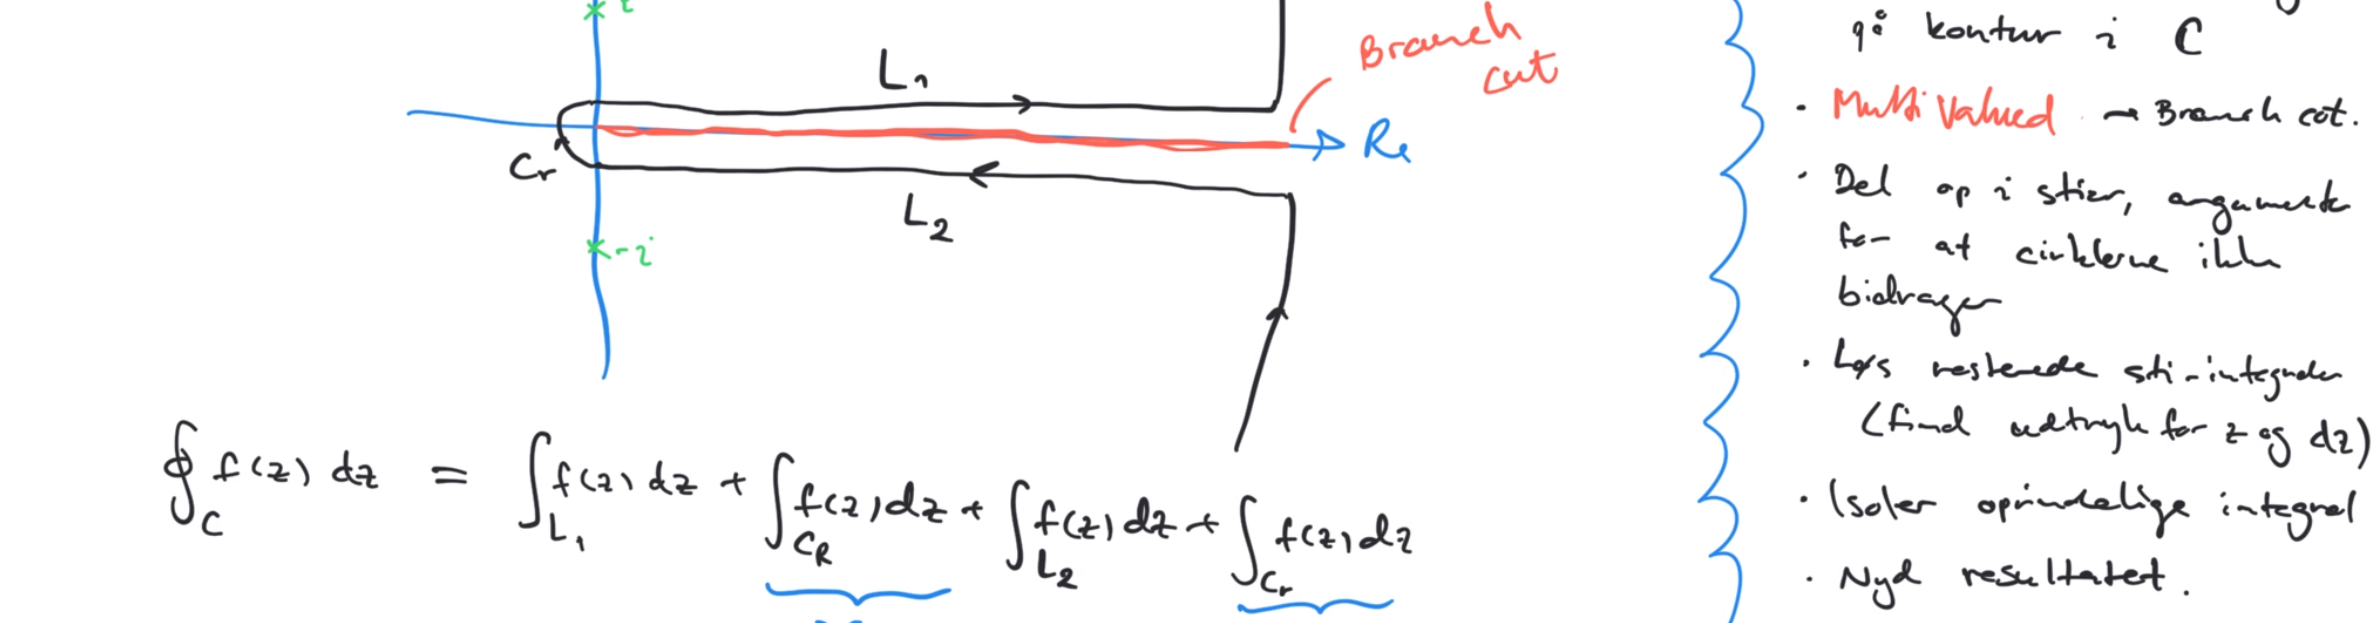 i
L₁
Branch
cut
Re
Cr
L₂
-i
∮_C f(z) dz = ∫_L₁ f(z) dz + ∫_CR f(z) dz + ∫_L₂ f(z) dz + ∫_Cr f(z) dz
på kontur i C
· Multi Valued → Branch cut.
· Del op i stier, argumenter
for at cirklerne ikke
bidrager
· Løs resterende sti-integraler
(find udtryk for z og dz)
· Isoler oprindelige integral
· Nyd resultatet.